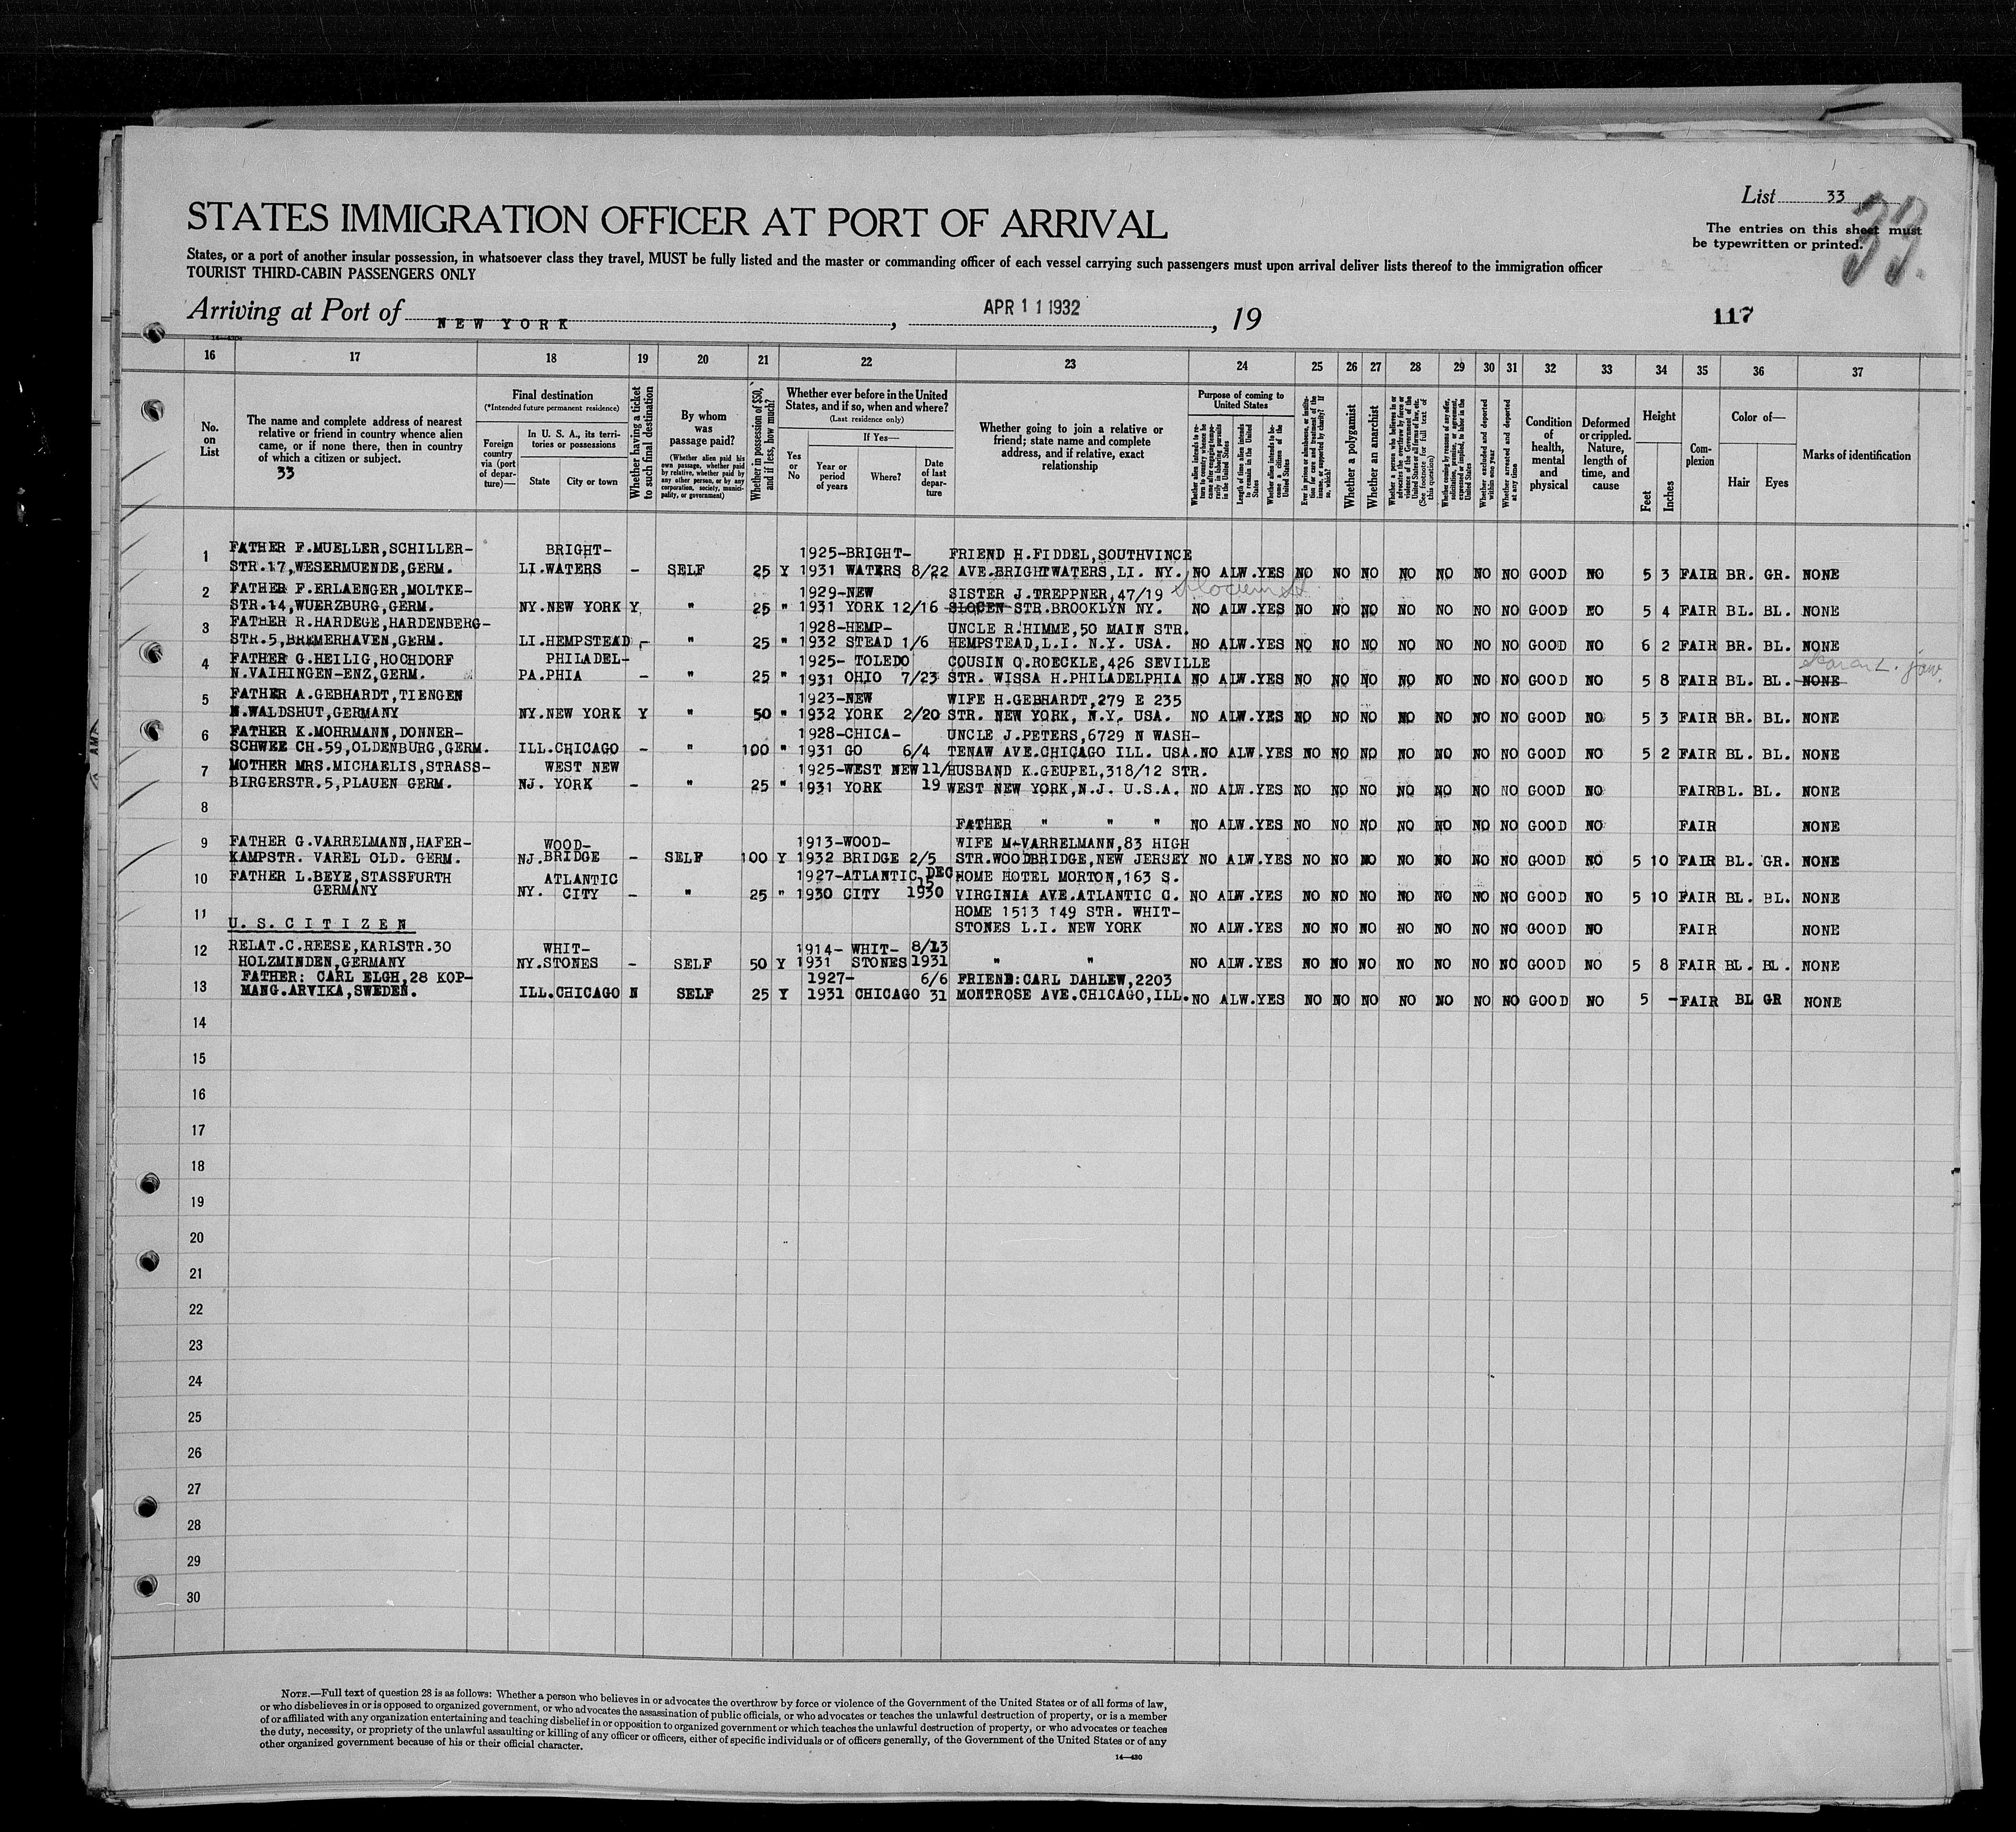 List 33
33.
The entries on this sheet must
be typewritten or printed.
STATES IMMIGRATION OFFICER AT PORT OF ARRIVAL
States, or a port of another insular possession, in whatsoever class they travel, MUST be fully listed and the master or commanding officer of each vessel carrying such passengers must upon arrival deliver lists thereof to the immigration officer
TOURIST THIRD-CABIN PASSENGERS ONLY
Arriving at Port of NEW YORK, APR 11 1932, 19
117
16 17 18 19 20 21 22 23 24 25 26 27 28 29 30 31 32 33 34 35 36 37
No. on List
The name and complete address of nearest
relative or friend in country whence alien
came, or if none there, then in country
of which a citizen or subject.
33
Final destination
(*Intended future permanent residence)
Foreign country via (port of departure)—
In U. S. A., its territories or possessions
State City or town
Whether having a ticket to such final destination
By whom was passage paid?
(Whether alien paid his own passage, whether paid by relative, whether paid by any other person, or by any corporation, society, municipality, or government)
Whether in possession of $50, and if less, how much?
Whether ever before in the United States, and if so, when and where?
(Last residence only)
Yes or No
If Yes—
Year or period of years Where? Date of last departure
Whether going to join a relative or
friend; state name and complete
address, and if relative, exact
relationship
Purpose of coming to United States
Length of time alien intends to remain in the United States
Whether alien intends to become a citizen of the United States
Whether a polygamist
Whether an anarchist
Whether excluded and deported within one year
Whether arrested and deported at any time
Condition of health, mental and physical
Deformed or crippled. Nature, length of time, and cause
Height
Feet Inches
Complexion
Color of—
Hair Eyes
Marks of identification
1 FATHER F.MUELLER,SCHILLER- BRIGHT- 1925-BRIGHT- FRIEND H.FIDDEL,SOUTHVINCE
STR.17,WESERMUENDE,GERM. LI.WATERS - SELF 25 Y 1931 WATERS 8/22 AVE.BRIGHTWATERS,LI. NY. NO ALW.YES NO NO NO NO NO NO NO GOOD NO 5 3 FAIR BR. GR. NONE
2 FATHER F.ERLAENGER,MOLTKE- 1929-NEW SISTER J.TREPPNER,47/19
STR.14,WUERZBURG,GERM. NY.NEW YORK Y " 25 " 1931 YORK 12/16 SLOCEN STR.BROOKLYN NY. NO ALW.YES NO NO NO NO NO NO NO GOOD NO 5 4 FAIR BL. BL. NONE
3 FATHER R.HARDEGE,HARDENBERG- 1928-HEMP- UNCLE R.HIMME,50 MAIN STR.
STR.5,BREMERHAVEN,GERM. LI.HEMPSTEAD - " 25 " 1932 STEAD 1/6 HEMPSTEAD,L.I. N.Y. USA. NO ALW.YES NO NO NO NO NO NO NO GOOD NO 6 2 FAIR BR. BL. NONE
4 FATHER G.HEILIG,HOCHDORF PHILADEL- 1925- TOLEDO COUSIN O.ROECKLE,426 SEVILLE
N.VAIHINGEN-ENZ,GERM. PA.PHIA - " 25 " 1931 OHIO 7/23 STR. WISSA H.PHILADELPHIA NO ALW.YES NO NO NO NO NO NO NO GOOD NO 5 8 FAIR BL. BL. NONE jaw
5 FATHER A.GEBHARDT,TIENGEN 1923-NEW WIFE H.GEBHARDT,279 E 235
N.WALDSHUT,GERMANY NY.NEW YORK Y " 50 " 1932 YORK 2/20 STR. NEW YORK, N.Y. USA. NO ALW.YES NO NO NO NO NO NO NO GOOD NO 5 3 FAIR BR. BL. NONE
6 FATHER K.MOHRMANN,DONNER- 1928-CHICA- UNCLE J.PETERS,6729 N WASH-
SCHWEE CH.59,OLDENBURG,GERM. ILL.CHICAGO - " 100 " 1931 GO 6/4 TENAW AVE.CHICAGO ILL. USA.NO ALW.YES NO NO NO NO NO NO NO GOOD NO 5 2 FAIR BL. BL. NONE
7 MOTHER MRS.MICHAELIS,STRASS- WEST NEW 1925-WEST NEW 11/ HUSBAND K.GEUPEL,318/12 STR.
BIRGERSTR.5,PLAUEN GERM. NJ. YORK - " 25 " 1931 YORK 19 WEST NEW YORK,N.J. U.S.A. NO ALW.YES NO NO NO NO NO NO NO GOOD NO FAIR BL. BL. NONE
8 FATHER " " " NO ALW.YES NO NO NO NO NO NO NO GOOD NO FAIR NONE
9 FATHER G.VARRELMANN,HAFER- WOOD- 1913-WOOD- WIFE M.VARRELMANN,83 HIGH
KAMPSTR. VAREL OLD. GERM. NJ.BRIDGE - SELF 100 Y 1932 BRIDGE 2/5 STR.WOODBRIDGE,NEW JERSEY NO ALW.YES NO NO NO NO NO NO NO GOOD NO 5 10 FAIR BL. GR. NONE
10 FATHER L.BEYE,STASSFURTH ATLANTIC 1927-ATLANTIC DEC. HOME HOTEL MORTON,163 S.
GERMANY NY. CITY - " 25 " 1930 CITY 15 1930 VIRGINIA AVE.ATLANTIC C. NO ALW.YES NO NO NO NO NO NO NO GOOD NO 5 10 FAIR BL. BL. NONE
11 HOME 1513 149 STR. WHIT-
U.S.CITIZEN STONES L.I. NEW YORK NO ALW.YES NO NO NO NO NO NO NO GOOD NO FAIR NONE
12 RELAT.C.REESE,KARLSTR.30 WHIT- 1914- WHIT- 8/13
HOLZMINDEN,GERMANY NY.STONES - SELF 50 Y 1931 STONES 1931 " " NO ALW.YES NO NO NO NO NO NO NO GOOD NO 5 8 FAIR BL. BL. NONE
13 FATHER: CARL ELGH,28 KOP- 1927- 6/6 FRIEND:CARL DAHLEW,2203
MANG.ARVIKA,SWEDEN. ILL.CHICAGO N SELF 25 Y 1931 CHICAGO 31 MONTROSE AVE.CHICAGO,ILL. NO ALW.YES NO NO NO NO NO NO NO GOOD NO 5 - FAIR BL GR NONE
14
15
16
17
18
19
20
21
22
23
24
25
26
27
28
29
30
NOTE.—Full text of question 28 is as follows: Whether a person who believes in or advocates the overthrow by force or violence of the Government of the United States or of all forms of law,
or who disbelieves in or is opposed to organized government, or who advocates the assassination of public officials, or who advocates or teaches the unlawful destruction of property, or is a member
of or affiliated with any organization entertaining and teaching disbelief in or opposition to organized government or which teaches the unlawful destruction of property, or who advocates or teaches
the duty, necessity, or propriety of the unlawful assaulting or killing of any officer or officers, either of specific individuals or of officers generally, of the Government of the United States or of any
other organized government because of his or their official character.
14—430